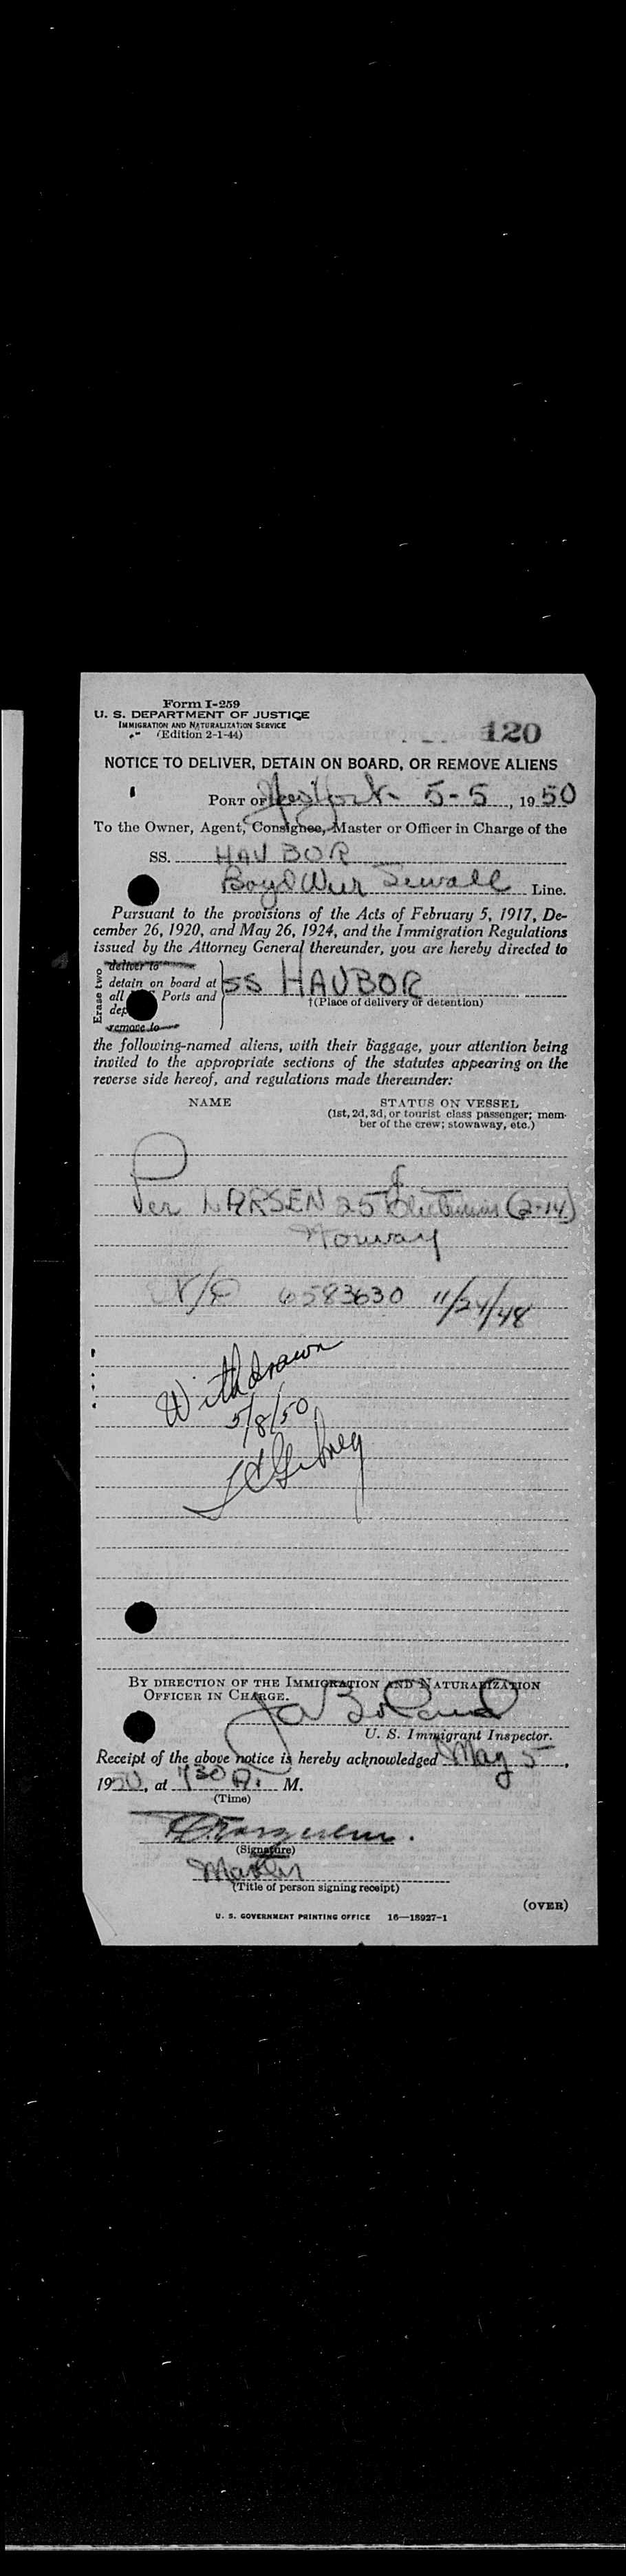 Form I-259
U. S. DEPARTMENT OF JUSTICE
IMMIGRATION AND NATURALIZATION SERVICE
(Edition 2-1-44)
120
NOTICE TO DELIVER, DETAIN ON BOARD, OR REMOVE ALIENS
PORT OF New York 5-5, 1950
To the Owner, Agent, Consignee, Master or Officer in Charge of the
SS. HAVBOR
Boyd Weir Sewall Line.
Pursuant to the provisions of the Acts of February 5, 1917, De-
cember 26, 1920, and May 26, 1924, and the Immigration Regulations
issued by the Attorney General thereunder, you are hereby directed to
Erase two
deliver to
detain on board at
all Ports and
dep
remove to
SS HAVBOR
†(Place of delivery or detention)
the following-named aliens, with their baggage, your attention being
invited to the appropriate sections of the statutes appearing on the
reverse side hereof, and regulations made thereunder:
NAME
STATUS ON VESSEL
(1st, 2d, 3d, or tourist class passenger; mem-
ber of the crew; stowaway, etc.)
Per LARSEN 25 (2-14)
Norway
6583630 11/24/48
Withdrawn
5/8/50
BY DIRECTION OF THE IMMIGRATION AND NATURALIZATION
OFFICER IN CHARGE.
U. S. Immigrant Inspector.
Receipt of the above notice is hereby acknowledged May 5,
1950, at 730 A. M.
(Time)
(Signature)
Master
(Title of person signing receipt)
(OVER)
U. S. GOVERNMENT PRINTING OFFICE 16—18927-1